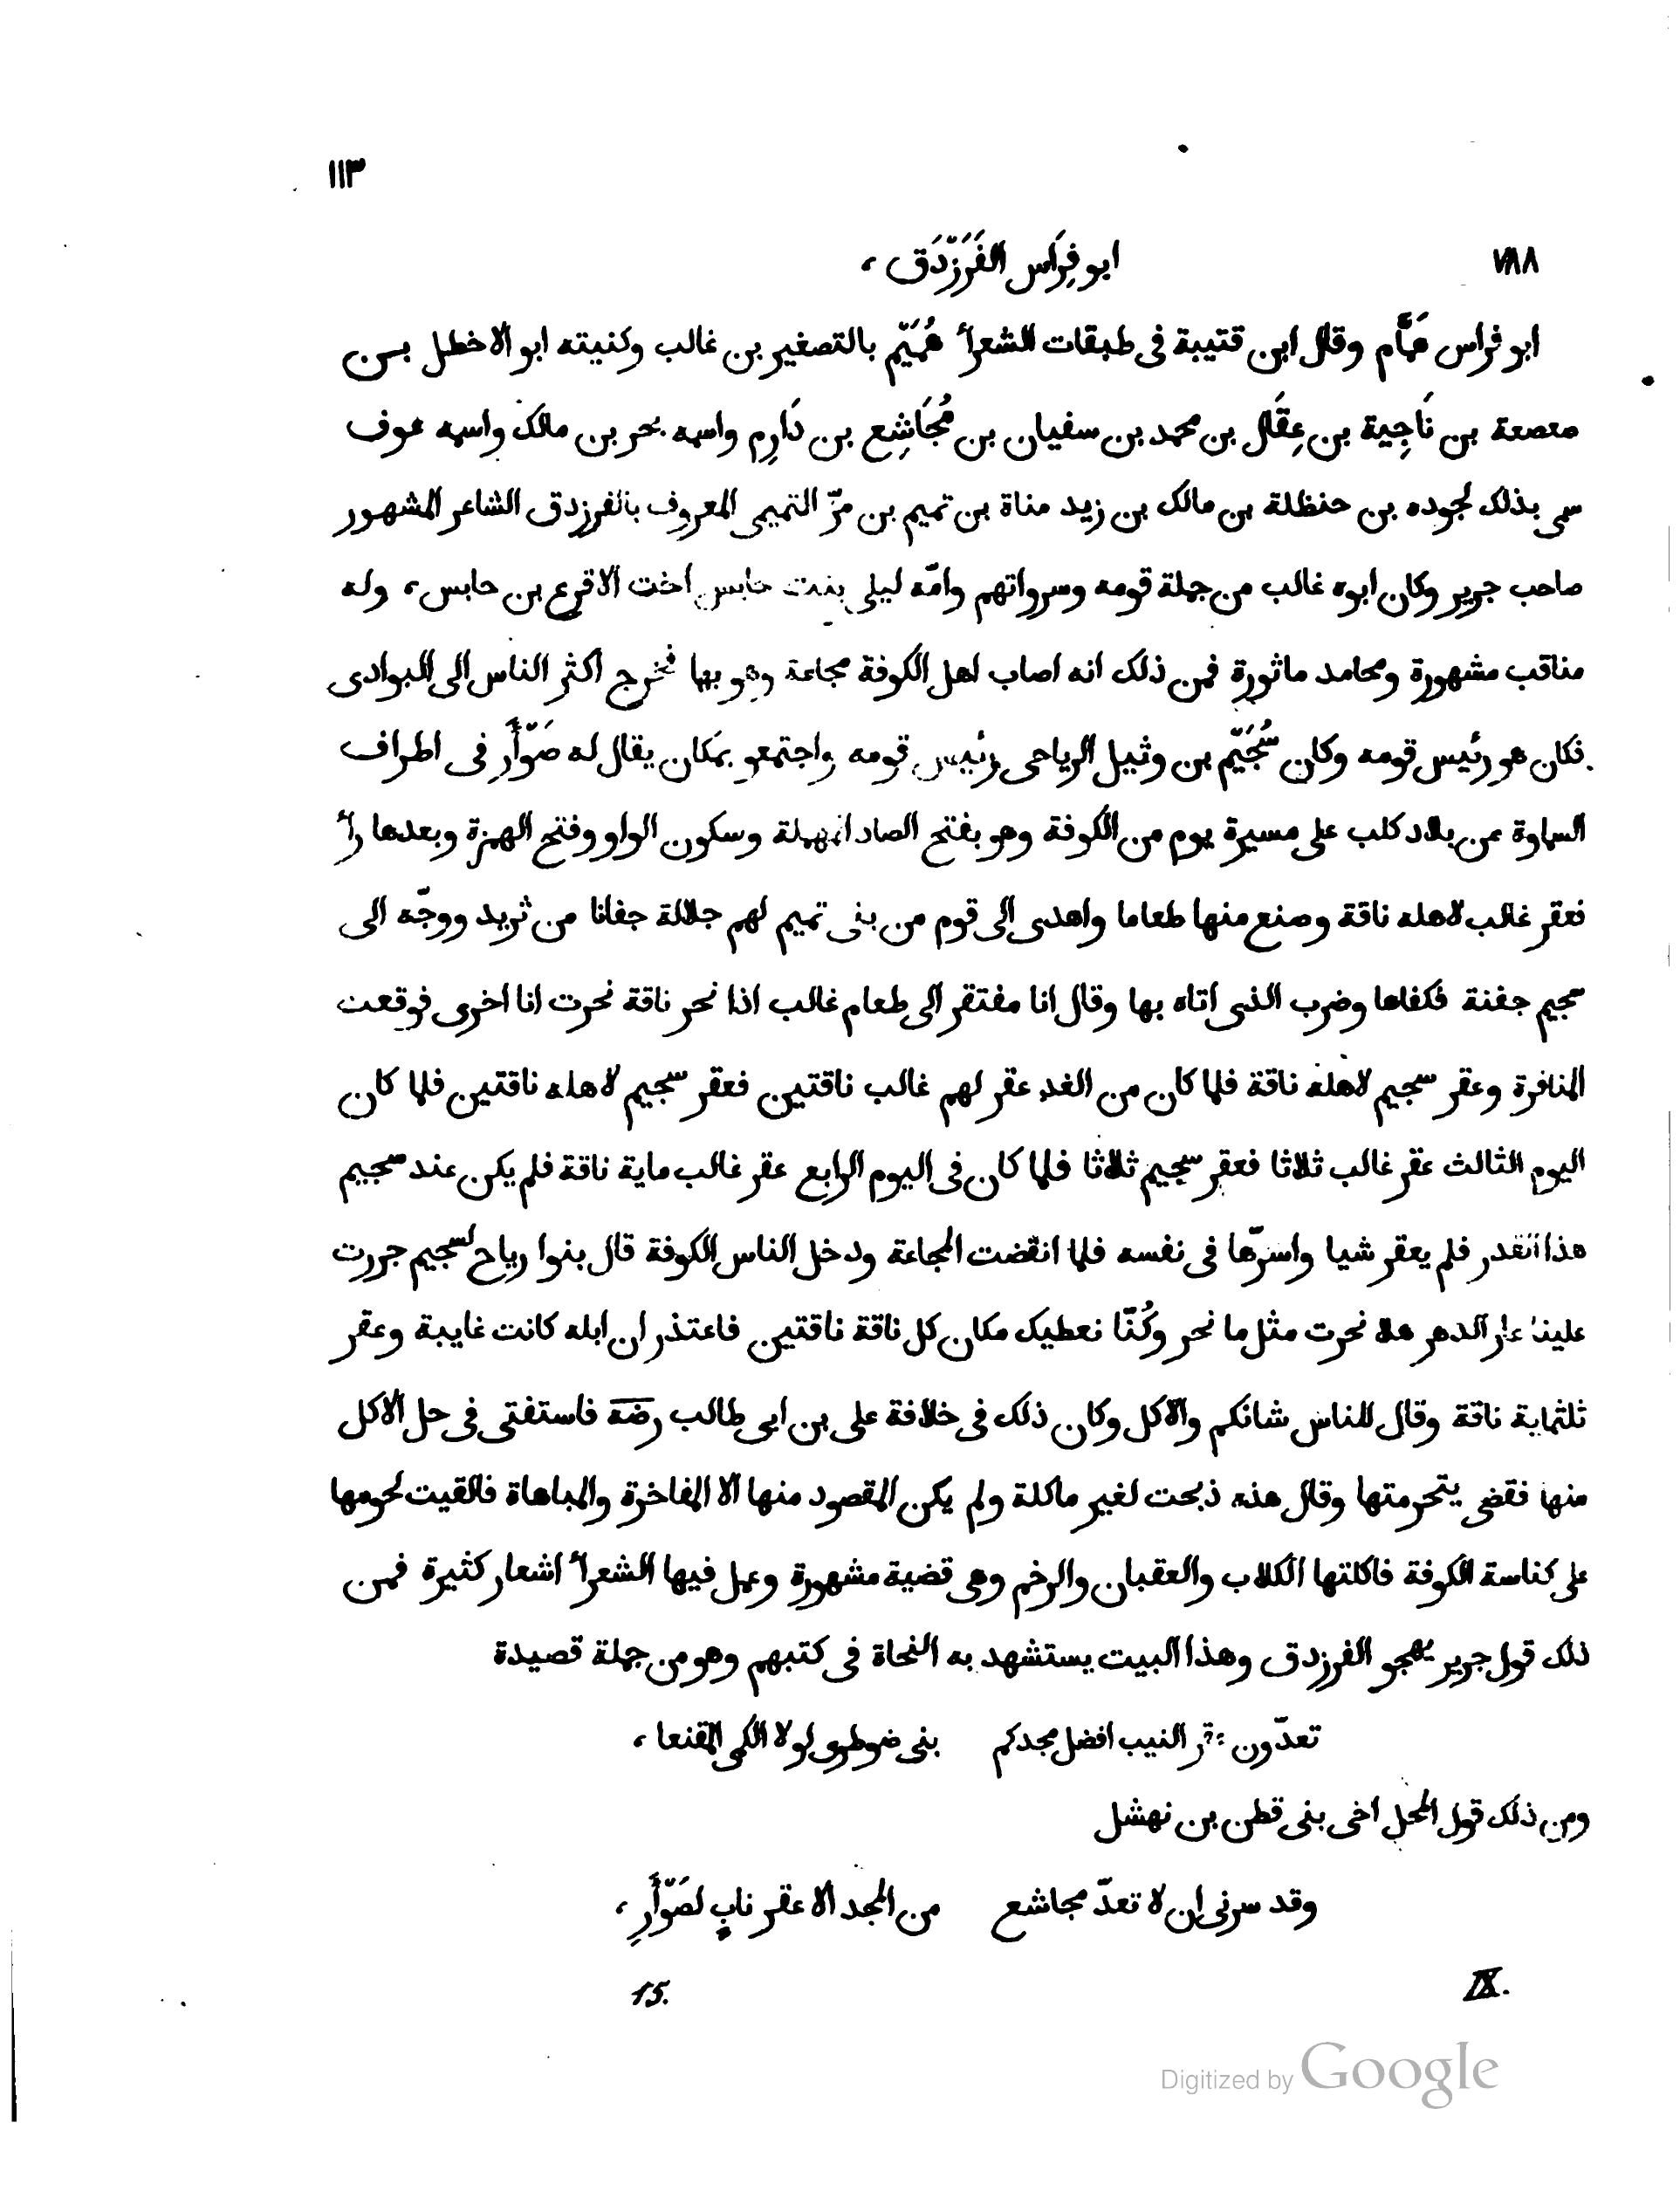 ١١٣
٧٨٨ ابو فِرَاس الفَرَزّدَق،
ابو فراس هَمَّام وقال ابن قتيبة فى طبقات الشعرأ هُمَيّم بالتصغير بن غالب وكنيته ابو الاخطل بن
صعصعة بن نَاجِية بن عِقَال بن محمد بن سفيان بن مُجَاشِع بن دَارِم واسمه بحر بن مالك واسمه عوف
سمى بذلك لجوده بن حنظلة بن مالك بن زيد مناة بن تميم بن مرّ التميمى المعروف بالفرزدق الشاعر المشهور
صاحب جرير وكان ابوه غالب من جملة قومه وسرواتهم وامّه ليلى بنت حابس اخت الاقرع بن حابس، وله
مناقب مشهورة ومحامد ماثورة فمن ذلك انه اصاب اهل الكوفة مجاعة وهو بها فخرج اكثر الناس الى البوادى
فكان هو رئيس قومه وكان سُحَيّم بن وثيل الرياحى رئيس قومه واجتمعو بمكان يقال له صَوّأَر فى اطراف
السماوة من بلاد كلب على مسيرة يوم من الكوفة وهو بفتح الصاد المهملة وسكون الواو وفتح الهمزة وبعدها رأ
فعقر غالب لاهله ناقة وصنع منها طعاما واهدى الى قوم من بنى تميم لهم جلالة جفانا من ثريد ووجّه الى
سحيم جفنة فكفاها وضرب الذى اتاه بها وقال انا مفتقر الى طعام غالب اذا نحر ناقة نحرت انا اخرى فوقعت
المنافرة وعقر سحيم لاهله ناقة فلما كان من الغد عقر لهم غالب ناقتين فعقر سحيم لاهله ناقتين فلما كان
اليوم الثالث عقر غالب ثلاثا فعقر سحيم ثلاثا فلما كان فى اليوم الرابع عقر غالب ماية ناقة فلم يكن عند سحيم
هذا القدر فلم يعقر شيا واسرّها فى نفسه فلما انقضت المجاعة ودخل الناس الكوفة قال بنوا رياح لسحيم جررت
علينا عار الدهر هلا نحرت مثل ما نحر وكُنّا نعطيك مكان كل ناقة ناقتين فاعتذر ان ابله كانت غايبة وعقر
ثلثماية ناقة وقال للناس شانكم والاكل وكان ذلك فى خلافة على بن ابى طالب رضه فاستفتى فى حل الاكل
منها فقضى بتحرمتها وقال هذه ذبحت لغير ماكلة ولم يكن المقصود منها الا المفاخرة والمباهاة فالقيت لحومها
على كناسة الكوفة فاكلتها الكلاب والعقبان والرخم وهى قضية مشهورة وعمل فيها الشعرأ اشعار كثيرة فمن
ذلك قول جرير يهجو الفرزدق وهذا البيت يستشهد به النحاة فى كتبهم وهو من جملة قصيدة
تعدّون عقر النيب افضل مجدكم بنى ضوطرى لولا الكمى المقنعا،
ومن ذلك قول المحل اخى بنى قطن بن نهشل
وقد سرنى ان لا تعدّ مجاشع من المجد الا عقر نابٍ لصَوّأَرِ،
IX. 15.
Digitized by Google